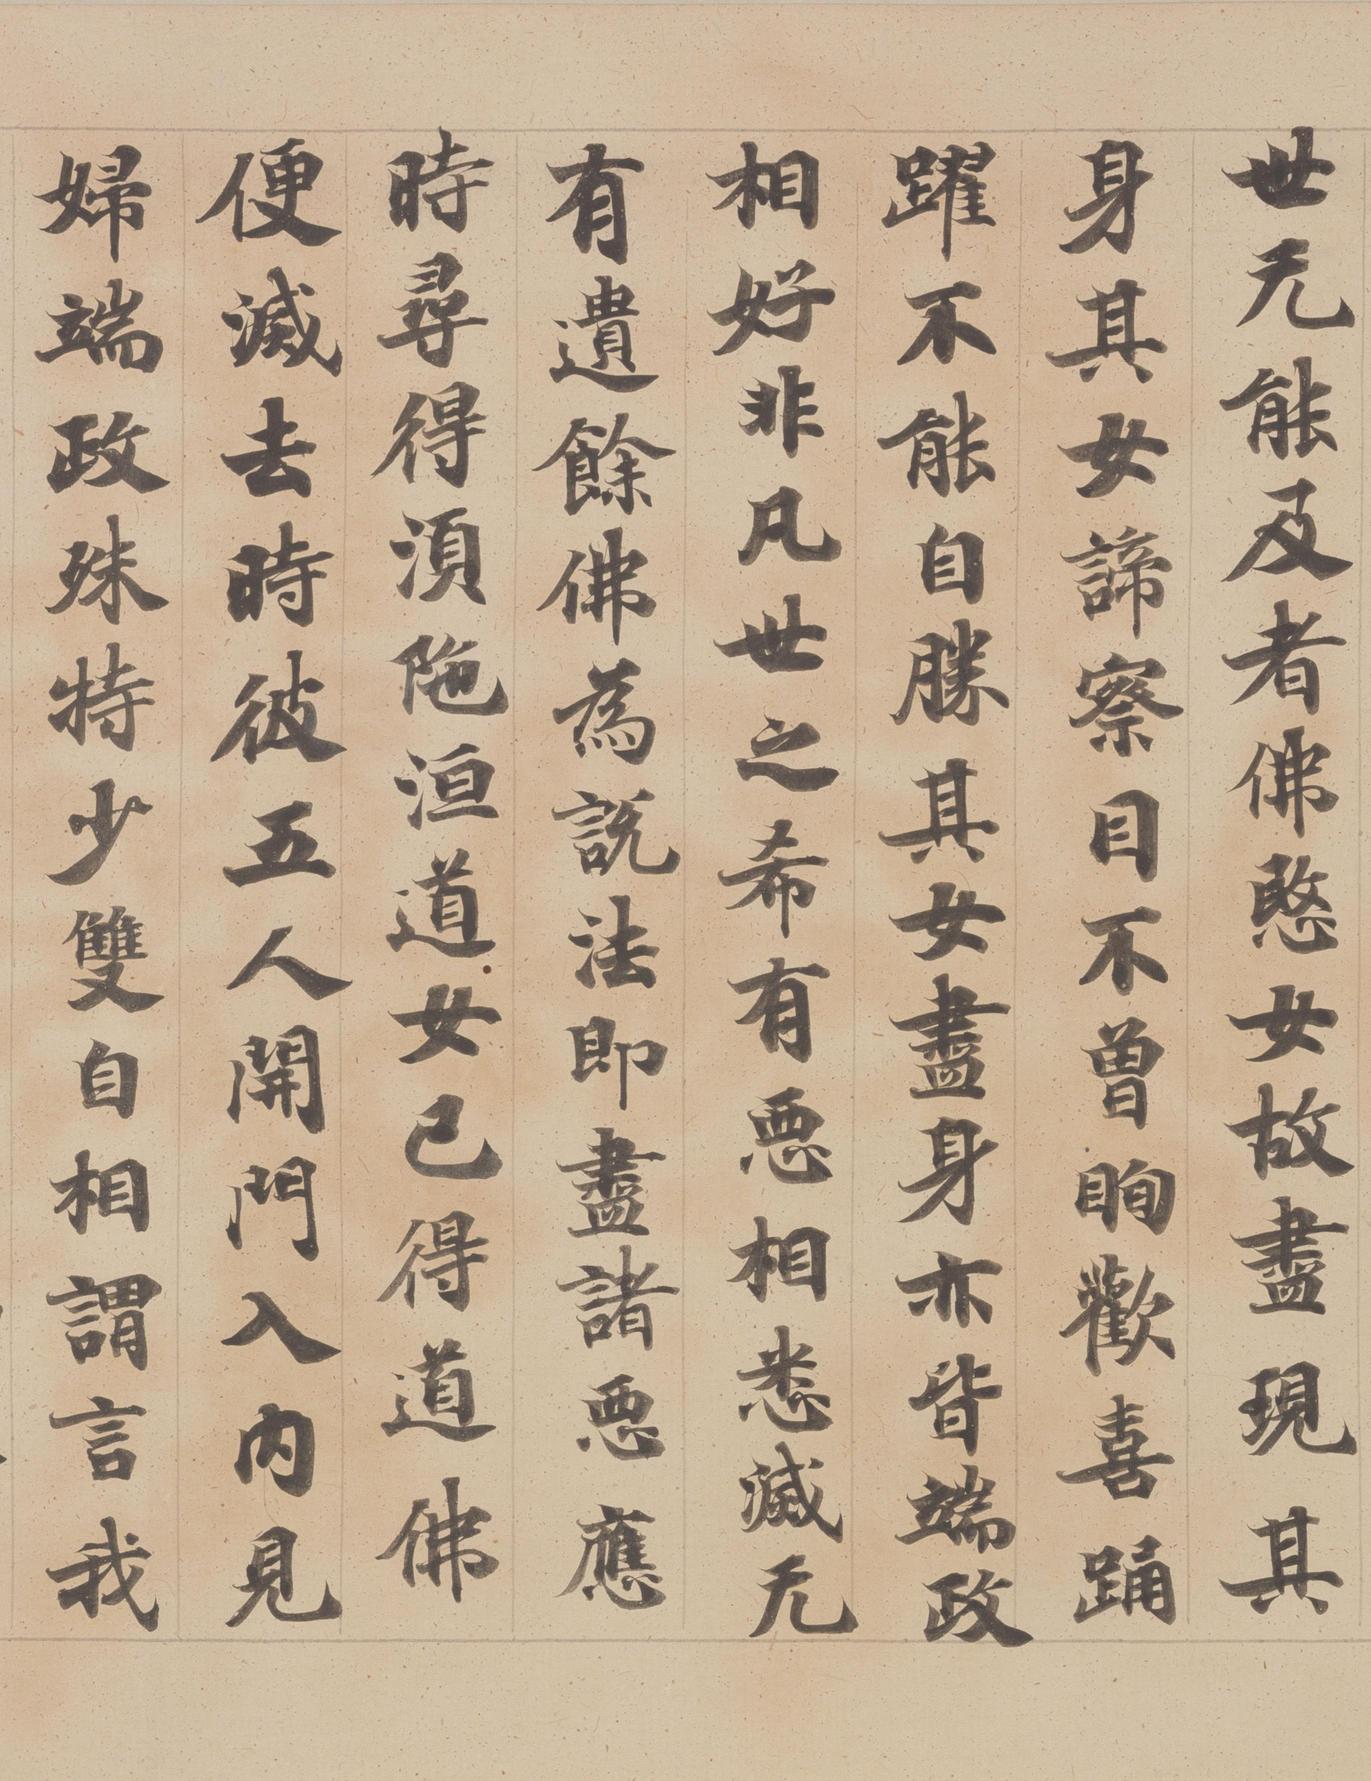 世无能及者佛愍女故盡現其
身其女諦察目不曾眴歡喜踊
躍不能自勝其女盡身亦皆端政
相好非凡世之希有惡相悉滅无
有遺餘佛為説法即盡諸惡應
時尋得湏陁洹道女已得道佛
便滅去時彼五人開門入内見
婦端政殊特少雙自相謂言我